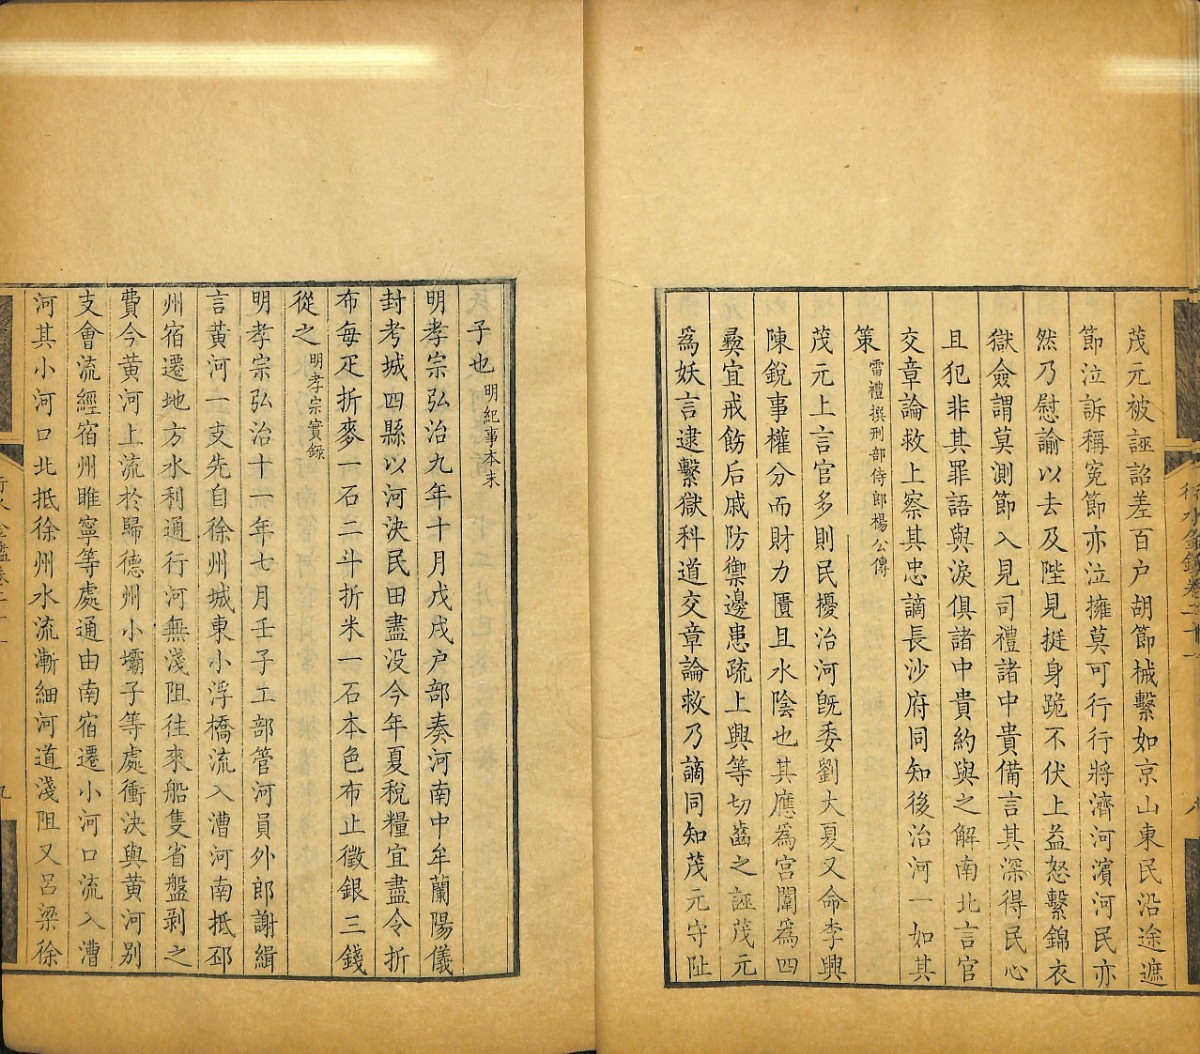 茂元被誣詔差百户胡節械繫如京山東民沿途遮
節泣訴稱寃節亦泣擁莫可行行將濟河濱河民亦
然乃慰諭以去及陛見挺身跪不伏上益怒繫錦衣
獄僉謂莫測節入見司禮諸中貴備言其深得民心
且犯非其罪語與淚俱諸中貴約與之解南北言官
交章論救上察其忠謫長沙府同知後治河一如其
策雷禮撰刑部侍郎楊公傳
茂元上言官多則民擾治河旣委劉大夏又命李興
陳銳事權分而財力匱且水陰也其應為宫闈為四
彜宜戒飭后戚防禦邊患疏上興等切齒之誣茂元
為妖言逮繫獄科道交章論救乃謫同知茂元守阯
子也明紀事本末
明孝宗弘治九年十月戊戌户部奏河南中牟蘭陽儀
封考城四縣以河決民田盡没今年夏稅糧宜盡令折
布每疋折麥一石二斗折米一石本色布止徵銀三錢
從之明孝宗實録
明孝宗弘治十一年七月壬子工部管河員外郎謝緝
言黄河一支先自徐州城東小浮橋流入漕河南抵邳
州宿遷地方水利通行河無淺阻往來船隻省盤剥之
費今黄河上流於歸德州小壩子等處衝決與黄河别
支會流經宿州睢寧等處通由南宿遷小河口流入漕
河其小河口北抵徐州水流漸細河道淺阻又呂梁徐